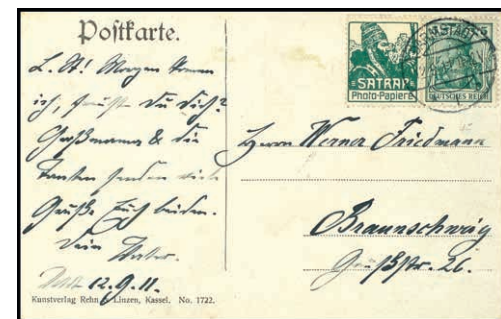 Postkarte.
L. A! Morgen komm
ich, freust Du Dich?
Großmama & die
Tanten senden viele
Grüße Euch beiden.
Dein Vater.
12.9.11.
Kunstverlag Rehn & Linzen, Kassel. No. 1722.
SATRAP
Photo-Papiere
DEUTSCHES REICH
Herrn Werner Friedmann
Braunschweig
26.